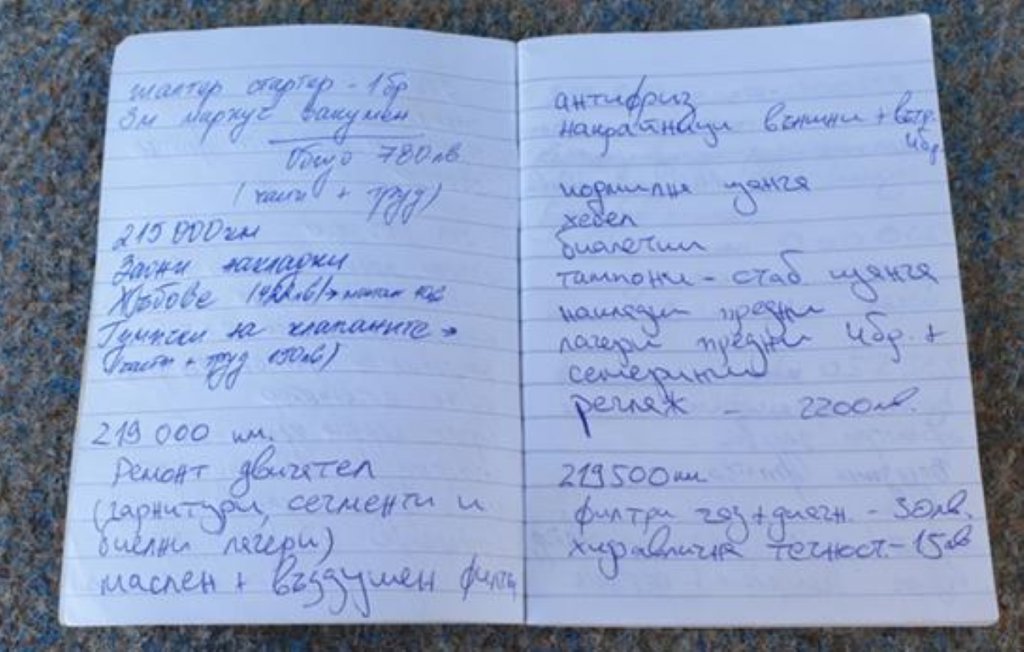 шалтер стартер - 1бр
3м маркуч вакумен
Общо 780лв
(части + труд)
215 000км
Задни накладки
Жабове
Гумички на клапаните →
(части + труд 150лв)
219 000 км.
Ремонт двигател
(гарнитури, сегменти и
биелни лагери)
маслен + въздушен филтър
антифриз
накрайници външни + вътр.
4бр
кормилна щанга
хебел
биалетки
тампони - стаб щанга
накладки предни
лагери предни 4бр. +
семеринги
реглаж - 2200лв.
219500км
филтри газ + диагн. - 30лв.
хидравлична течност - 15лв